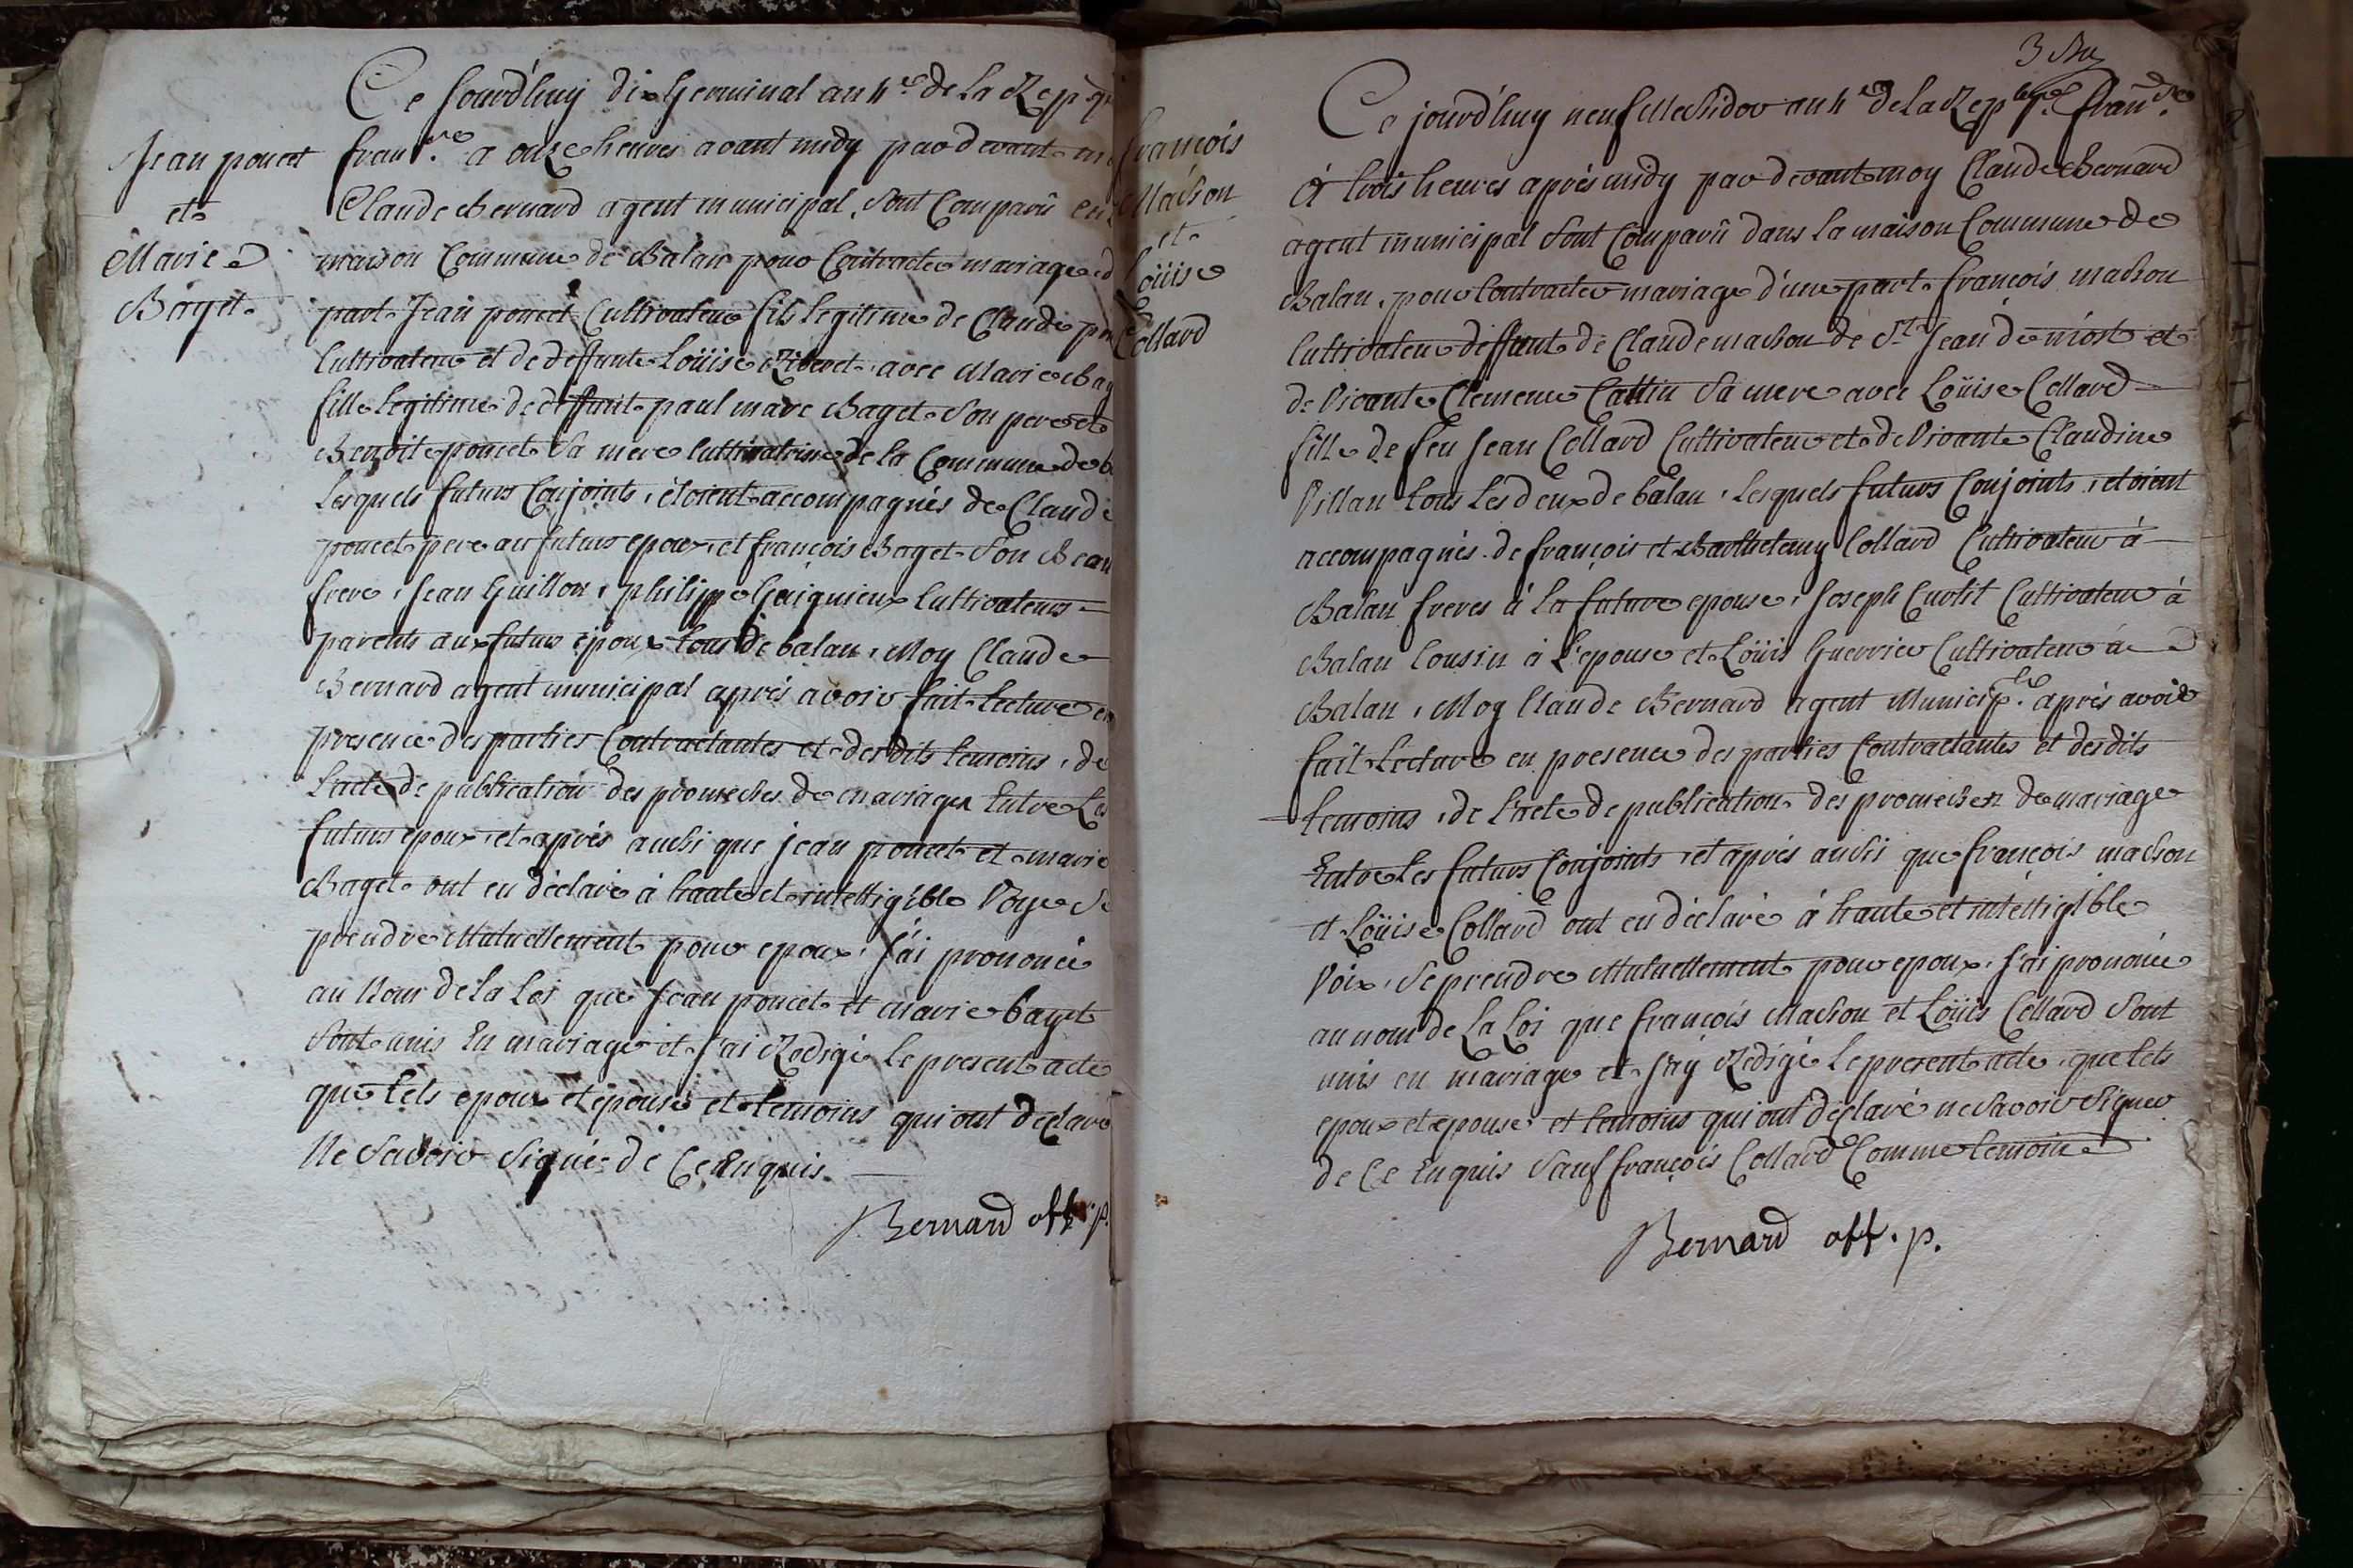 Jean poncet
et
Marie
Baget
Ce Jourd'huy dix Germinal an 4e de la Rep
franse a onze heures avant midy par devant
Claude Bernard agent municipal, sont Comparû en
maison Commune de Balan pour Contracter mariage d
part Jean poncet Cultivateur fils legitime de Claude
Cultivateur et de deffunte Loüise avec Marie Bag
fille legitime de deffunt paul marc Baget son pere et
Benoite poncet sa mere cultivatrice de la Commune de b
Lesquels futurs Conjoints, étoient accompagnés de Claude
poncet pere au futurs epoux, et françois Baget son Beau
frere, Jean Guillon, philippe Guiguieux Cultivateurs
parents aux futurs époux tous de balan, Moy Claude
Bernard agent municipal aprés avoir fait Lecture en
presence des parties Contractantes et des dits temoins, de
L'acte de publication des promeches de mariages Entre Les
futurs epoux, et aprés aussi que jean poncet et marie
Baget ont eu déclaré à haute et intelligible Voye Se
prendre Mutuellement pour epoux, J'ai prononcé
au Nom de la Loi que Jean poncet et marie baget
sont unis En mariage et J'ai Redigé le present acte
que lels epoux et épouse et temoins qui ont déclaré
Ne Savoir Signé de Ce Enquis.
Bernard off. p.
3
françois
Machon
et
Loüise
Collard
Ce jourd'huy neuf Messidor an 4e de la Rep franse
à trois heures aprés midy par devant moy Claude Bernard
agent municipal sont Comparû dans la maison Commune de
Balan, pour Contracter mariage d'une part françois machon
Cultivateur deffunt de Claude machon de St Jean de niost et
de Vivante Clemence Cattin sa mere avec Loüise Collard
fille de feu Jean Collard Cultivateur et de Vivante Claudine
Villan tous Les deux de balan, Lesquels futurs Conjoints, etoient
accompagnés de françois et Barthelemy Collard Cultivateur à
Balan freres à la future epouse, Joseph Curlit Cultivateur à
Balan Cousin à L'epouse et Loüis Guerrier Cultivateur à
Balan, Moy Claude Bernard agent Municiple aprés avoir
fait Lecture en presence des parties Contractantes et desdits
temoins, de L'acte de publication des promeses de mariage
Entre Les futurs Conjoints, et aprés aussi que françois machon
et Loüise Collard ont eu déclaré à haute et intelligible
Voix, se prendre Mutuellement pour epoux, J'ai prononcé
au nom de La Loi que françois Machon et Loüis Collard sont
unis en mariage et J'ay Redigé le present acte, que lels
epoux et epouse, et temoins qui ont déclaré ne Savoir Signer
de Ce Enquis Sauf françois Collard Comme temoin
Bernard off. p.